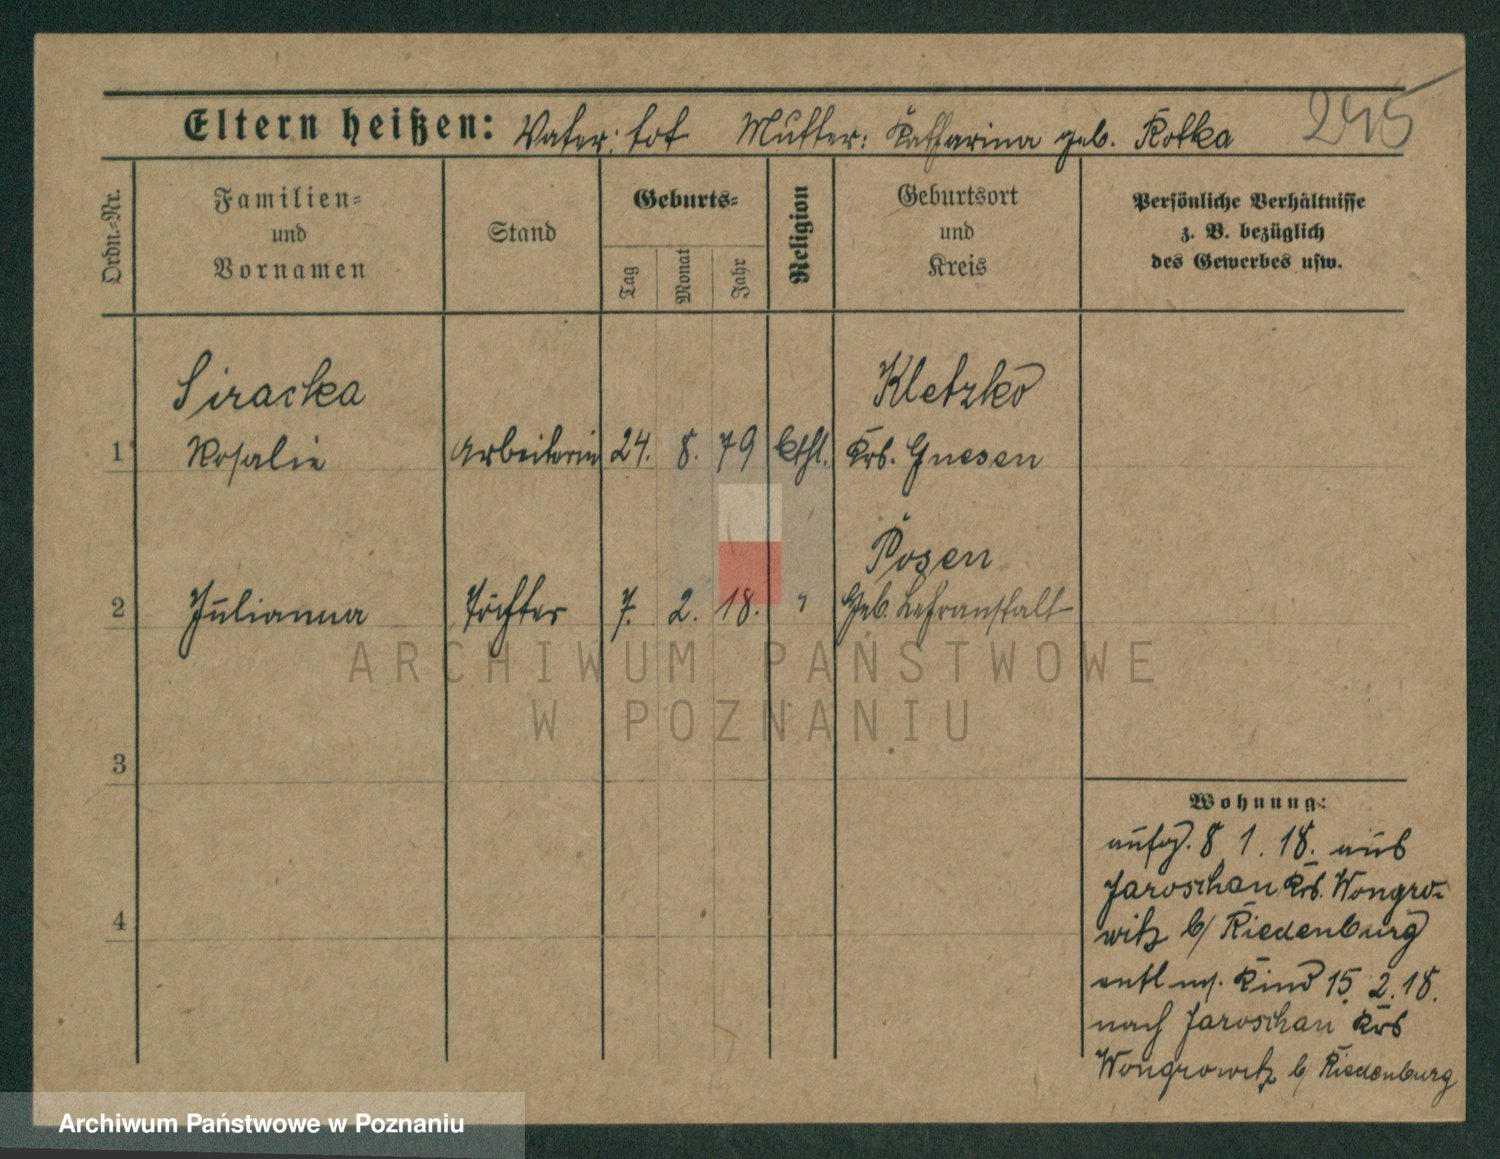 Eltern heißen: Vater: tot Mutter: Katharina geb. Kotka
245
Ordn.-Nr.
Familien-
und
Vornamen
Stand
Geburts-
Tag
Monat
Jahr
Religion
Geburtsort
und
Kreis
Persönliche Verhältnisse
z. B. bezüglich
des Gewerbes usw.
Siracka Kletzko
1 Rosalie Arbeiterin 24. 8. 79 kthl. Krs. Gnesen
Posen
2 Julianna Tochter 7. 2. 18. " Geb. Lehranstalt
3
4
Wohnung:
aufg. 8 1. 18. aus
Jaroschau Krs. Wongro-
witz b/ Riedenburg
entl m. Kind 15. 2. 18.
nach Jaroschau Krs
Wongrowitz b/ Riedenburg
ARCHIWUM PAŃSTWOWE
W POZNANIU
Archiwum Państwowe w Poznaniu